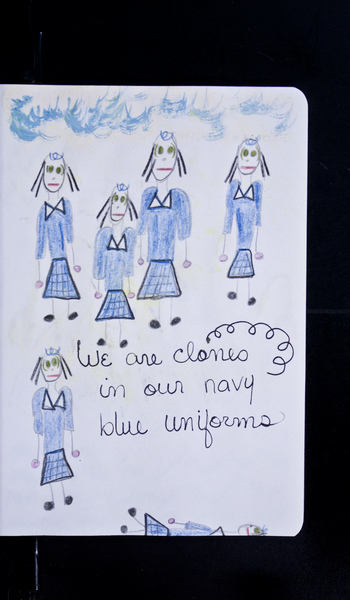 We are clones
in our navy
blue uniforms